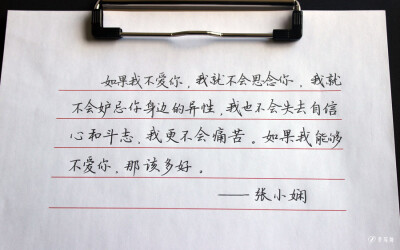 如果我不爱你，我就不会思念你，我就
不会妒忌你身边的异性，我也不会失去自信
心和斗志，我更不会痛苦。如果我能够
不爱你，那该多好。
——张小娴